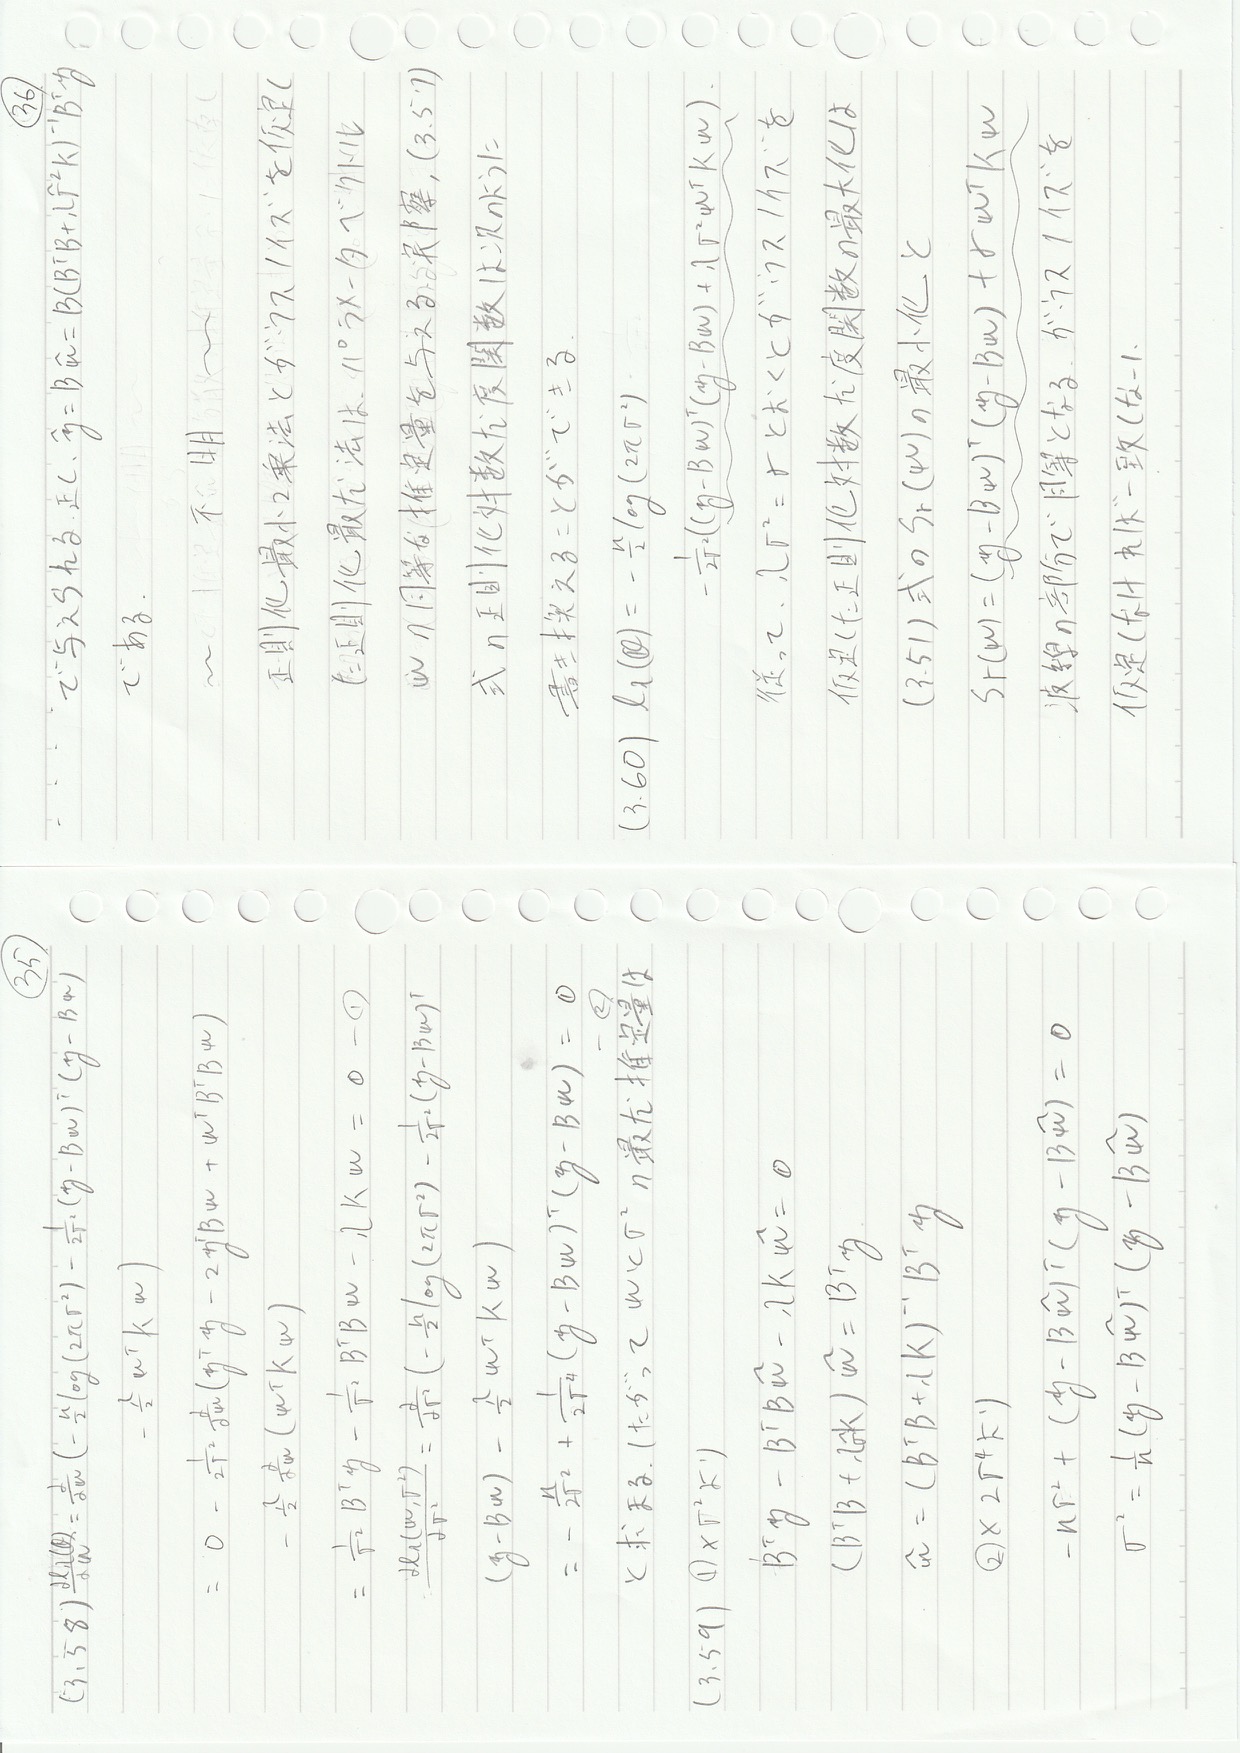 ㉟
(3.58) ∂lλ(θ)/∂w = ∂/∂w (-n/2 log(2πσ²) - 1/2σ² (y-Bw)ᵀ(y-Bw)
- λ/2 wᵀKw)
= 0 - 1/2σ² ∂/∂w (yᵀy - 2yᵀBw + wᵀBᵀBw)
- λ/2 ∂/∂w (wᵀKw)
= 1/σ² Bᵀy - 1/σ² BᵀBw - λKw = 0 - ①
∂lλ(w,σ²)/∂σ² = ∂/∂σ² (-n/2 log(2πσ²) - 1/2σ² (y-Bw)ᵀ
(y-Bw) - λ/2 wᵀKw)
= -n/2σ² + 1/2σ⁴ (y-Bw)ᵀ(y-Bw) = 0
- ②
と求まる。したがってwとσ²の最尤推定量は
(3.59) ①×σ²より
Bᵀy - BᵀBŵ - λKŵ = 0
ŵ = Bᵀy
ŵ = (BᵀB+λK)⁻¹Bᵀy
②×2σ⁴より
-nσ² + (y-Bŵ)ᵀ(y-Bŵ) = 0
σ² = 1/n (y-Bŵ)ᵀ(y-Bŵ)
㊱
で与えられる。正し、ŷ=Bŵ=B(BᵀB+λσ̂²K)⁻¹Bᵀy
である。
不明
正則化最小2乗法とガウスノイズを仮定し
た正則化最尤法は、パラメータベクトル
wの同等な推定量を与える。実際、(3.57)
式の正則化対数尤度関数は次のように
書き換えることができる。
(3.60) lλ(θ) = -n/2 log(2πσ²)
-1/2σ² ((y-Bw)ᵀ(y-Bw)+λσ²wᵀKw).
従って、λσ²=γとおくとガウスノイズを
仮定した正則化対数尤度関数の最大化は
(3.51)式のSγ(w)の最小化と
Sγ(w)=(y-Bw)ᵀ(y-Bw)+γwᵀKw
波線の部所で同等となる。ガウスノイズを
仮定しなければ一致しない。